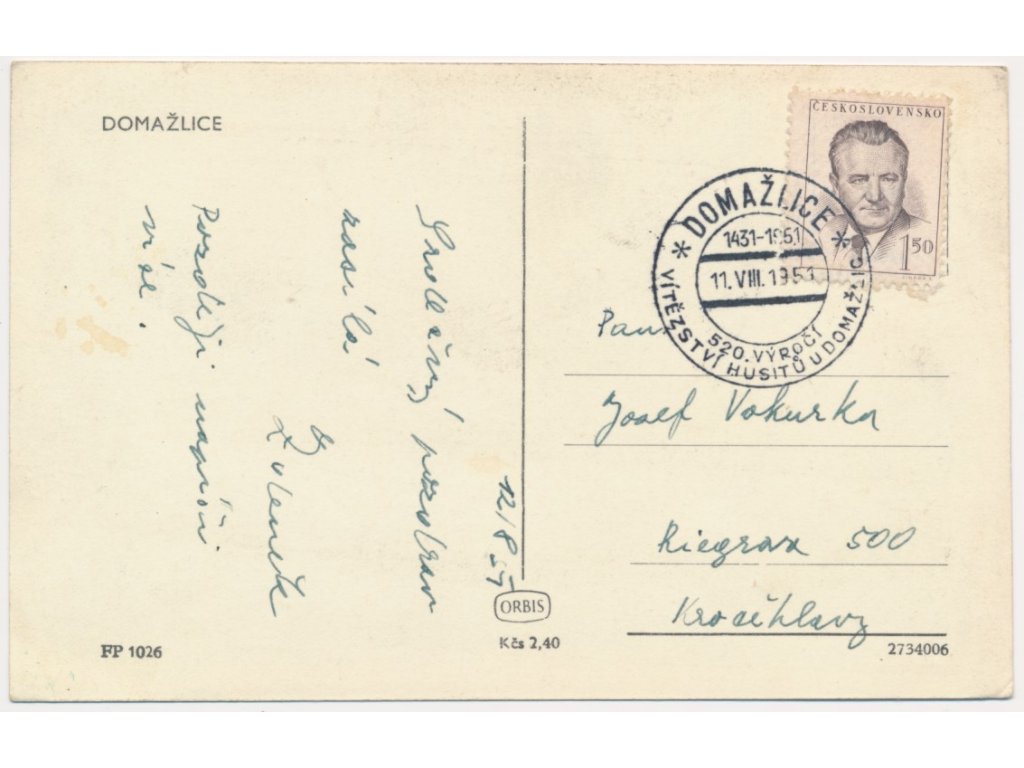 DOMAŽLICE
Srdečný pozdrav
zasílá
Zdeněk
Později napíši
více.
12/8 51
FP 1026
ORBIS
Kčs 2,40
ČESKOSLOVENSKO
1 50
* DOMAŽLICE *
1431-1951
11. VIII. 1951
520. VÝROČÍ
VÍTĚZSTVÍ HUSITŮ U DOMAŽLIC
Pan
Josef Vokurka
Riegrova 500
Kročehlavy
2734006